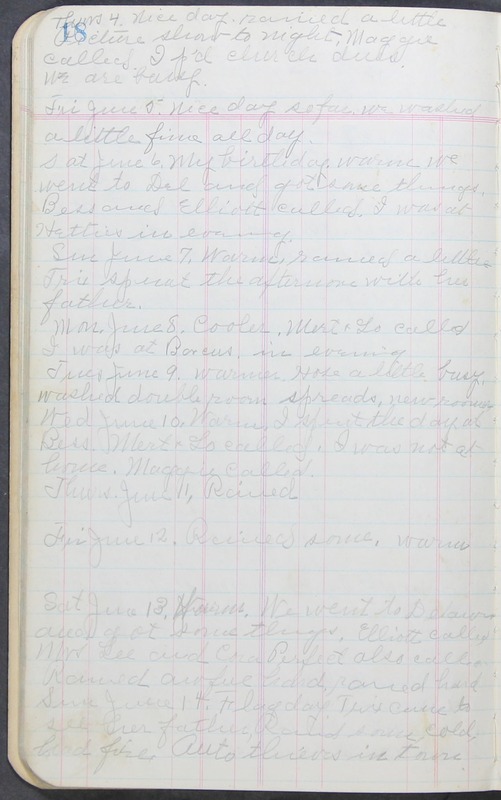 18
Thurs 4. Nice day. rained a little
Picture show to night, Maggie
called, I p'd church dues.
We are busy.
Fri June 5. Nice day so far, we washed
a little fine all day.
Sat June 6. My birthday, warm we
went to Del and got some things.
Bess and Elliott called. I was at
Hetties in evening.
Sun June 7. Warm, rained a little
Tris spent the afternoon with her
father.
Mon. June 8. Cooler. Mert & Lo called
I was at in evening
Tues June 9. warmer. a little busy.
washed double room spreads, new rooms
Wed June 10. Warm, I spent the day at
Bess. Mert & Lo called. I was not at
home. Maggie called.
Thurs. June 11, Rained
Fri June 12. Rained some, warm
Sat June 13, Warm. We went to Delaware
and got some things. Elliott called
Mrs Lee and Cora Perfect also called
Rained rained hard
Sun June 14. Flag day Tris came to
see her father, Rained some cold,
had fire, Auto thieves in town.